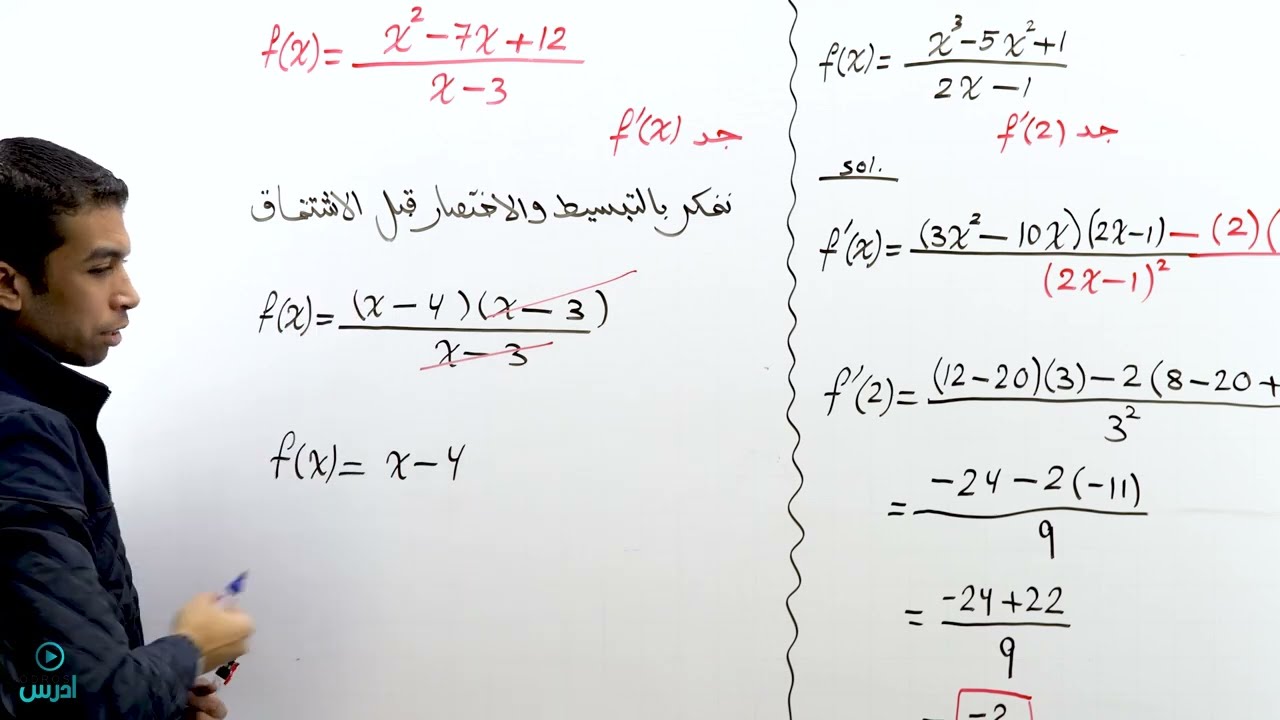 f(x)= x²-7x+12 / x-3
جد f'(x)
نفكر بالتبسيط والاختصار قبل الاشتقاق
f(x)= (x-4)(x-3) / x-3
f(x)= x-4
f(x)= x³-5x²+1 / 2x-1
جد f'(2)
sol.
f'(x)= (3x²-10x)(2x-1)-(2)( / (2x-1)²
f'(2)= (12-20)(3)-2(8-20+ / 3²
= -24-2(-11) / 9
= -24+22 / 9
= -2
ادرس